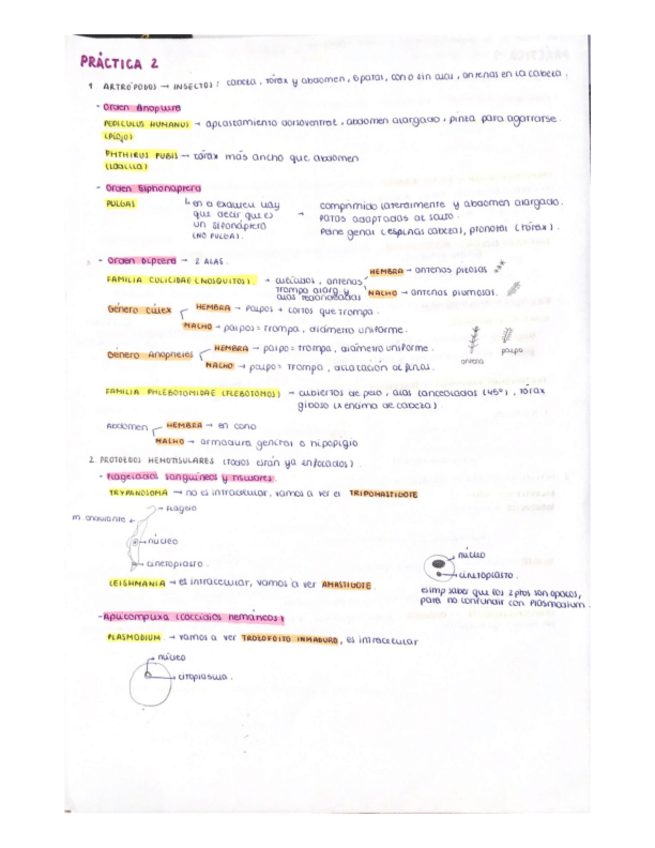 PRÁCTICA 2
1. ARTRÓPODOS → INSECTOS: cabeza, tórax y abdomen, 6 patas, con o sin alas, antenas en la cabeza.
- Orden Anoplura
PEDICULUS HUMANUS → aplastamiento dorsoventral, abdomen alargado, pinza para agarrarse.
(PIOJO)
PHTHIRUS PUBIS → tórax más ancho que abdomen
(LADILLA)
- Orden Siphonaptera
PULGAS ↳ en el examen hay que decir que es un sifonáptero (NO PULGA). → comprimido lateralmente y abdomen alargado.
patas adaptadas al salto.
peine genal (espinas cabeza), pronotal (tórax).
- Orden Díptera → 2 ALAS.
FAMILIA CULICIDAE (MOSQUITOS). → antenas
trompa alarg. y
alas redondeadas
HEMBRA → antenas pilosas
MACHO → antenas plumosas.
Género Culex HEMBRA → palpos + cortos que trompa.
MACHO → palpos = trompa, diámetro uniforme.
Género Anopheles HEMBRA → palpo = trompa, diámetro uniforme.
MACHO → palpo = trompa, dilatación al final.
antena
palpo
FAMILIA PHLEBOTOMIDAE (FLEBOTOMOS) → cubiertos de pelo, alas lanceoladas (45º), tórax
giboso (x encima de cabeza).
Abdomen HEMBRA → en cono
MACHO → armadura genital o hipopigio
2. PROTOZOOS HEMOTISULARES (todos estarán ya enfocados).
- Flagelados sanguíneos y tisulares.
TRYPANOSOMA → no es intracelular, vamos a ver el TRIPOMASTIGOTE
→ flagelo
m. ondulante
núcleo
cinetoplasto.
LEISHMANIA → es intracelular, vamos a ver AMASTIGOTE.
núcleo
cinetoplasto.
es imp saber que los 2 ptos son opacos,
para no confundir con Plasmodium.
- Apicomplexa (coccidios hemáticos)
PLASMODIUM → vamos a ver TROFOZOITO INMADURO, es intracelular
núcleo
citoplasma.